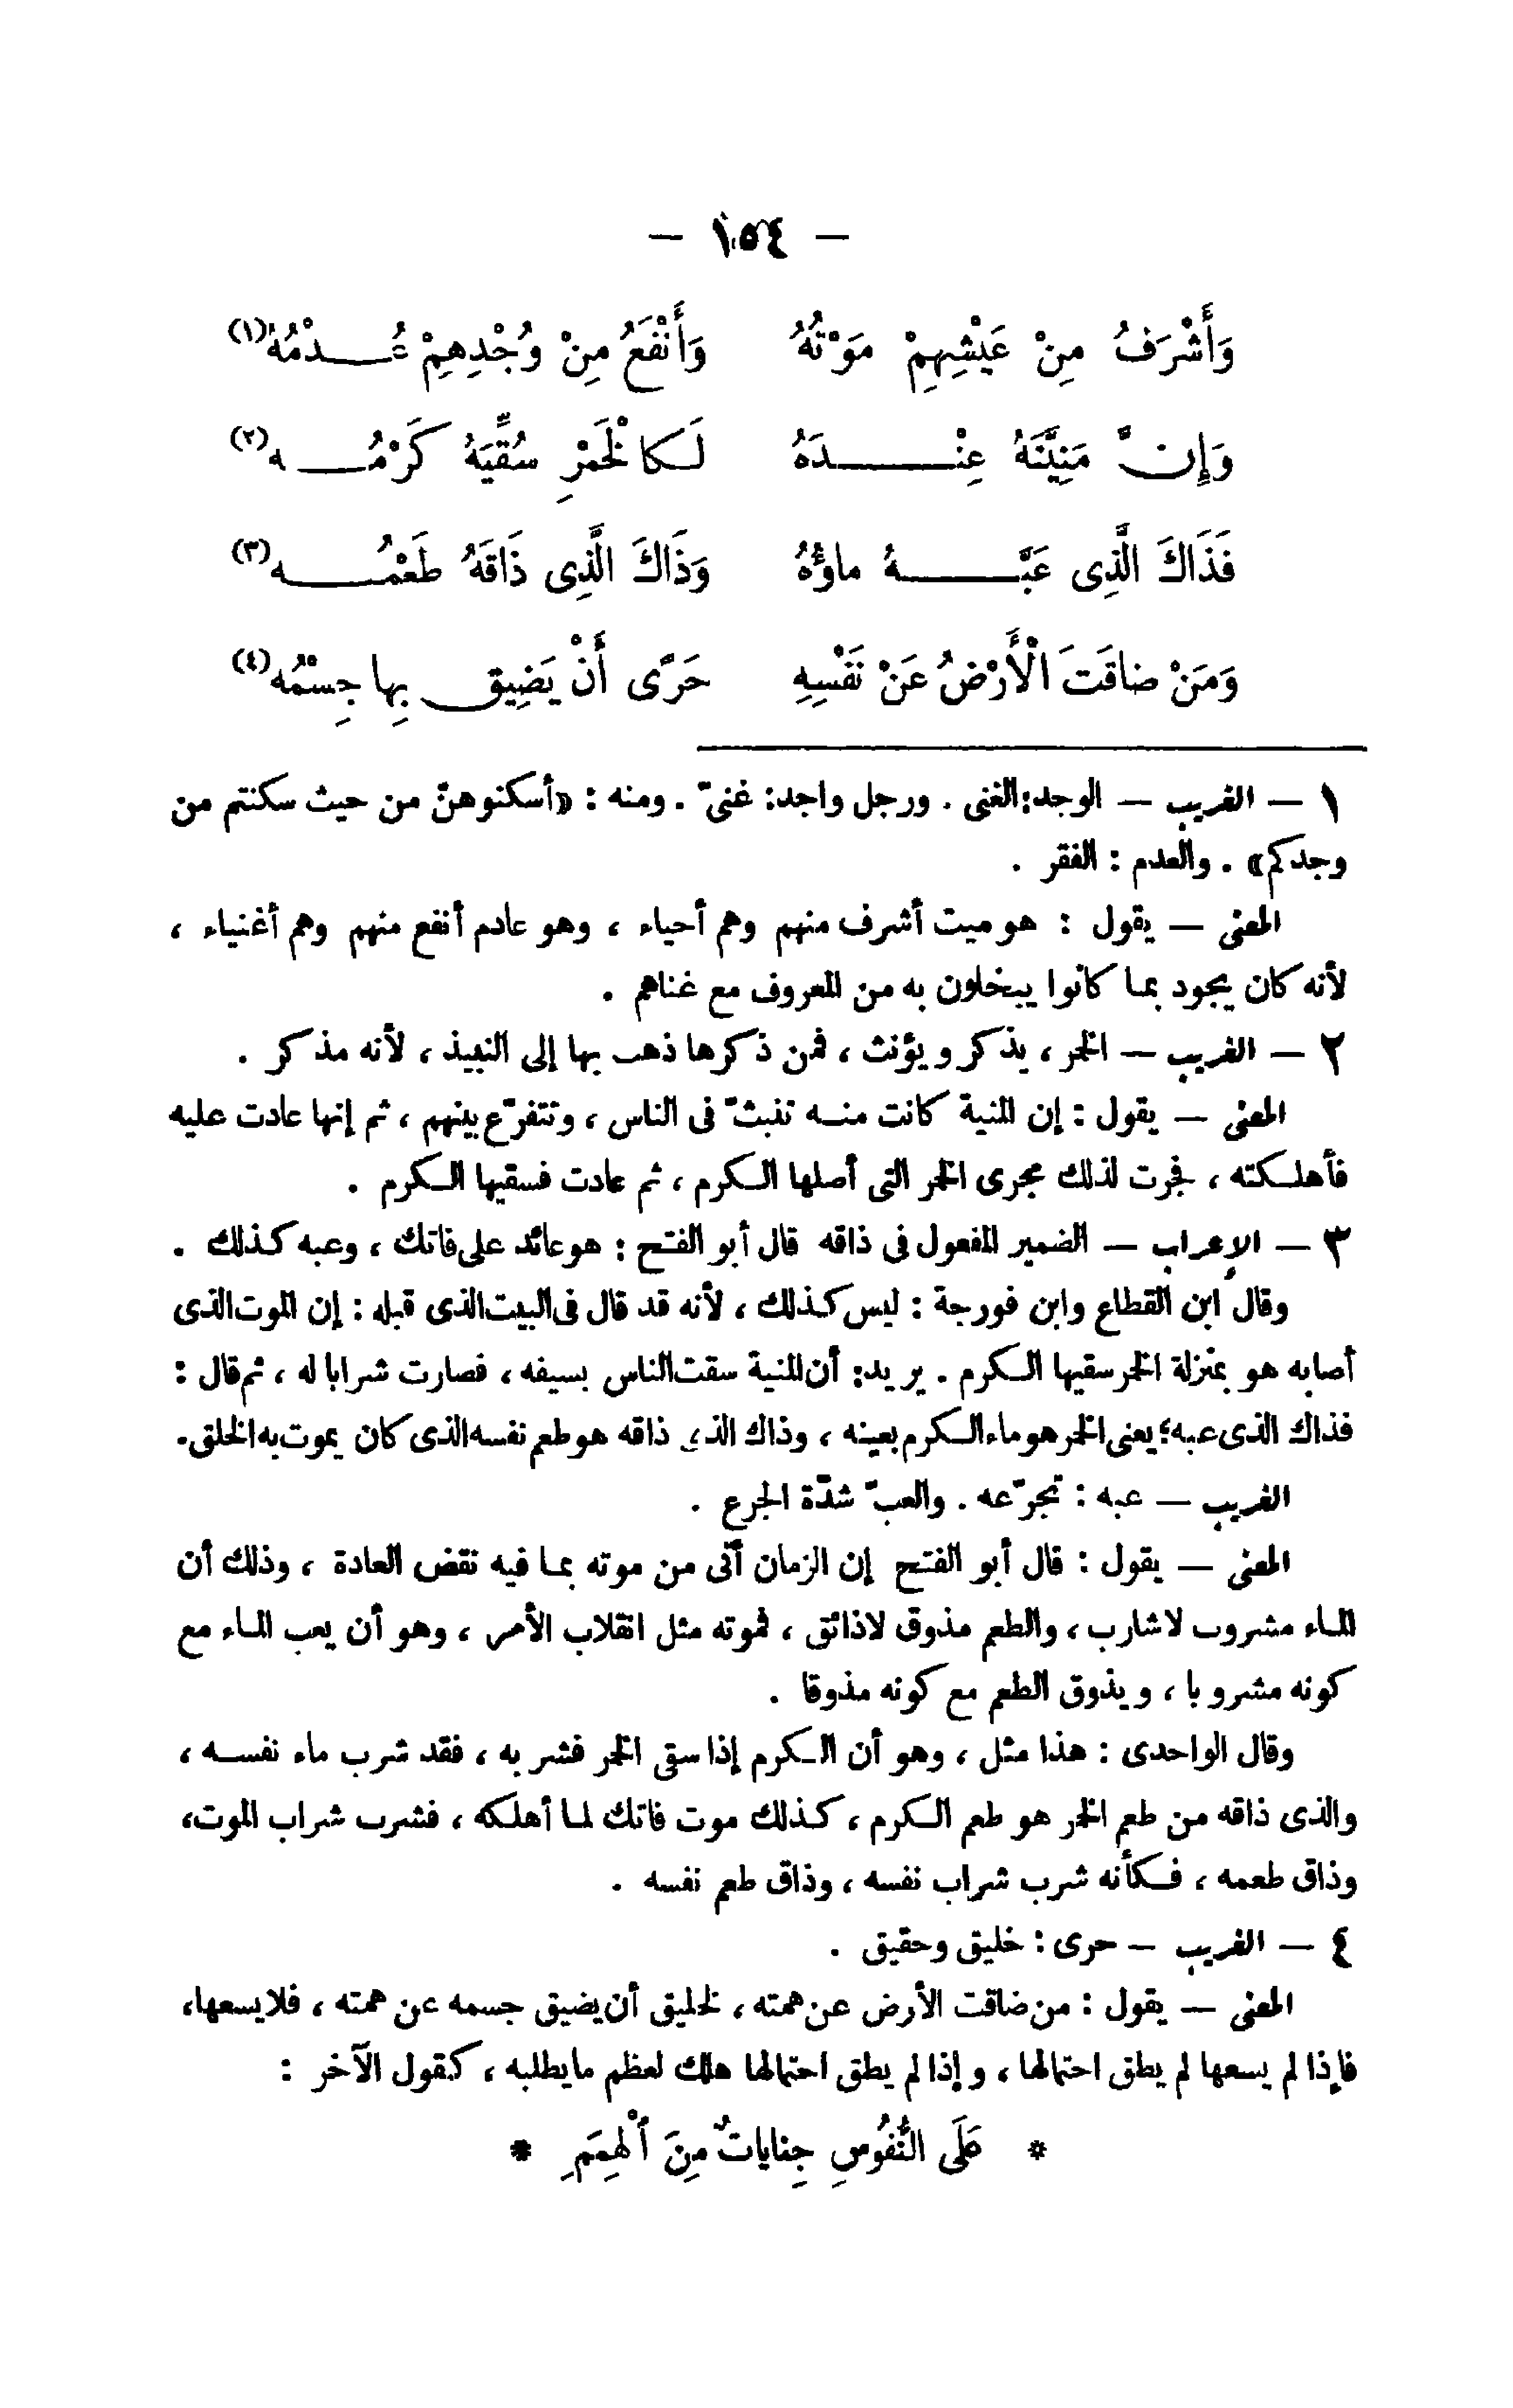 — ١٥٤ —
وَأَشْرَفُ مِنْ عَيْشِهِمْ مَوْتُهُ وَأَنْفَعُ مِنْ وُجْدِهِمْ عُدْمُهُ(١)
وَإِنَّ مَنِيَّتَهُ عِنْدَهُ لَكالْخَمْرِ سُقِّيَهُ كَرْمُه(٢)
فَذَاكَ الَّذِى عَبَّهُ ماؤُهُ وَذَاكَ الَّذِى ذَاقَهُ طَعْمُه(٣)
وَمَنْ ضاقَتَ الْأَرْضُ عَنْ نَفْسِهِ حَرًى أَنْ يَضِيق بِها جِسْمُه(٤)
١ — الغريب — الوجد: الغنى . ورجل واجد: غنىّ . ومنه : «أسكنوهنّ من حيث سكنتم من
وجدكم» . والعدم : الفقر .
المعنى — يقول : هو ميت أشرف منهم وهم أحياء ، وهو عادم أنفع منهم وهم أغنياء ،
لأنه كان يجود بما كانوا يبخلون به من المعروف مع غناهم .
٢ — الغريب — الخمر ، يذكر ويؤنث ، فمن ذكرها ذهب بها إلى النبيذ ، لأنه مذكر .
المعنى — يقول : إن المنية كانت منه تنبثّ فى الناس ، وتتفرّع بينهم ، ثم إنها عادت عليه
فأهلكته ، فجرت لذلك مجرى الخمر التى أصلها الكرم ، ثم عادت فسقيها الكرم .
٣ — الإعراب — الضمير المفعول فى ذاقه قال أبو الفتح : هو عائد على فاتك ، وعبه كذلك .
وقال ابن القطاع وابن فورجة : ليس كذلك ، لأنه قد قال فى البيت الذى قبله : إن الموت الذى
أصابه هو بمنزلة الخمر سقيها الكرم . يريد: أن المنية سقت الناس بسيفه ، فصارت شرابا له ، ثم قال :
فذاك الذى عبه ؛ يعنى الخمر هو ماء الكرم بعينه ، وذاك الذى ذاقه هو طعم نفسه الذى كان يموت به الخلق.
الغريب — عبه : تجرّعه . والعبّ شدّة الجرع .
المعنى — يقول : قال أبو الفتح إن الزمان أتى من موته بما فيه نقض العادة ، وذلك أن
الماء مشروب لا شارب ، والطعم مذوق لا ذائق ، فموته مثل انقلاب الأمر ، وهو أن يعب الماء مع
كونه مشروبا ، ويذوق الطعم مع كونه مذوقا .
وقال الواحدى : هذا مثل ، وهو أن الكرم إذا سقى الخمر فشربه ، فقد شرب ماء نفسه ،
والذى ذاقه من طعم الخمر هو طعم الكرم ، كذلك موت فاتك لما أهلكه ، فشرب شراب الموت،
وذاق طعمه ، فكأنه شرب شراب نفسه ، وذاق طعم نفسه .
٤ — الغريب — حرى : خليق وحقيق .
المعنى — يقول : من ضاقت الأرض عن همته ، لخليق أن يضيق جسمه عن همته ، فلا يسعها،
فإذا لم يسعها لم يطق احتمالها ، وإذا لم يطق احتمالها هلك لعظم ما يطلبه ، كقول الآخر :
* عَلَى النُّفُوسِ جِناياتٌ مِنَ ٱلْهِمَمِ *